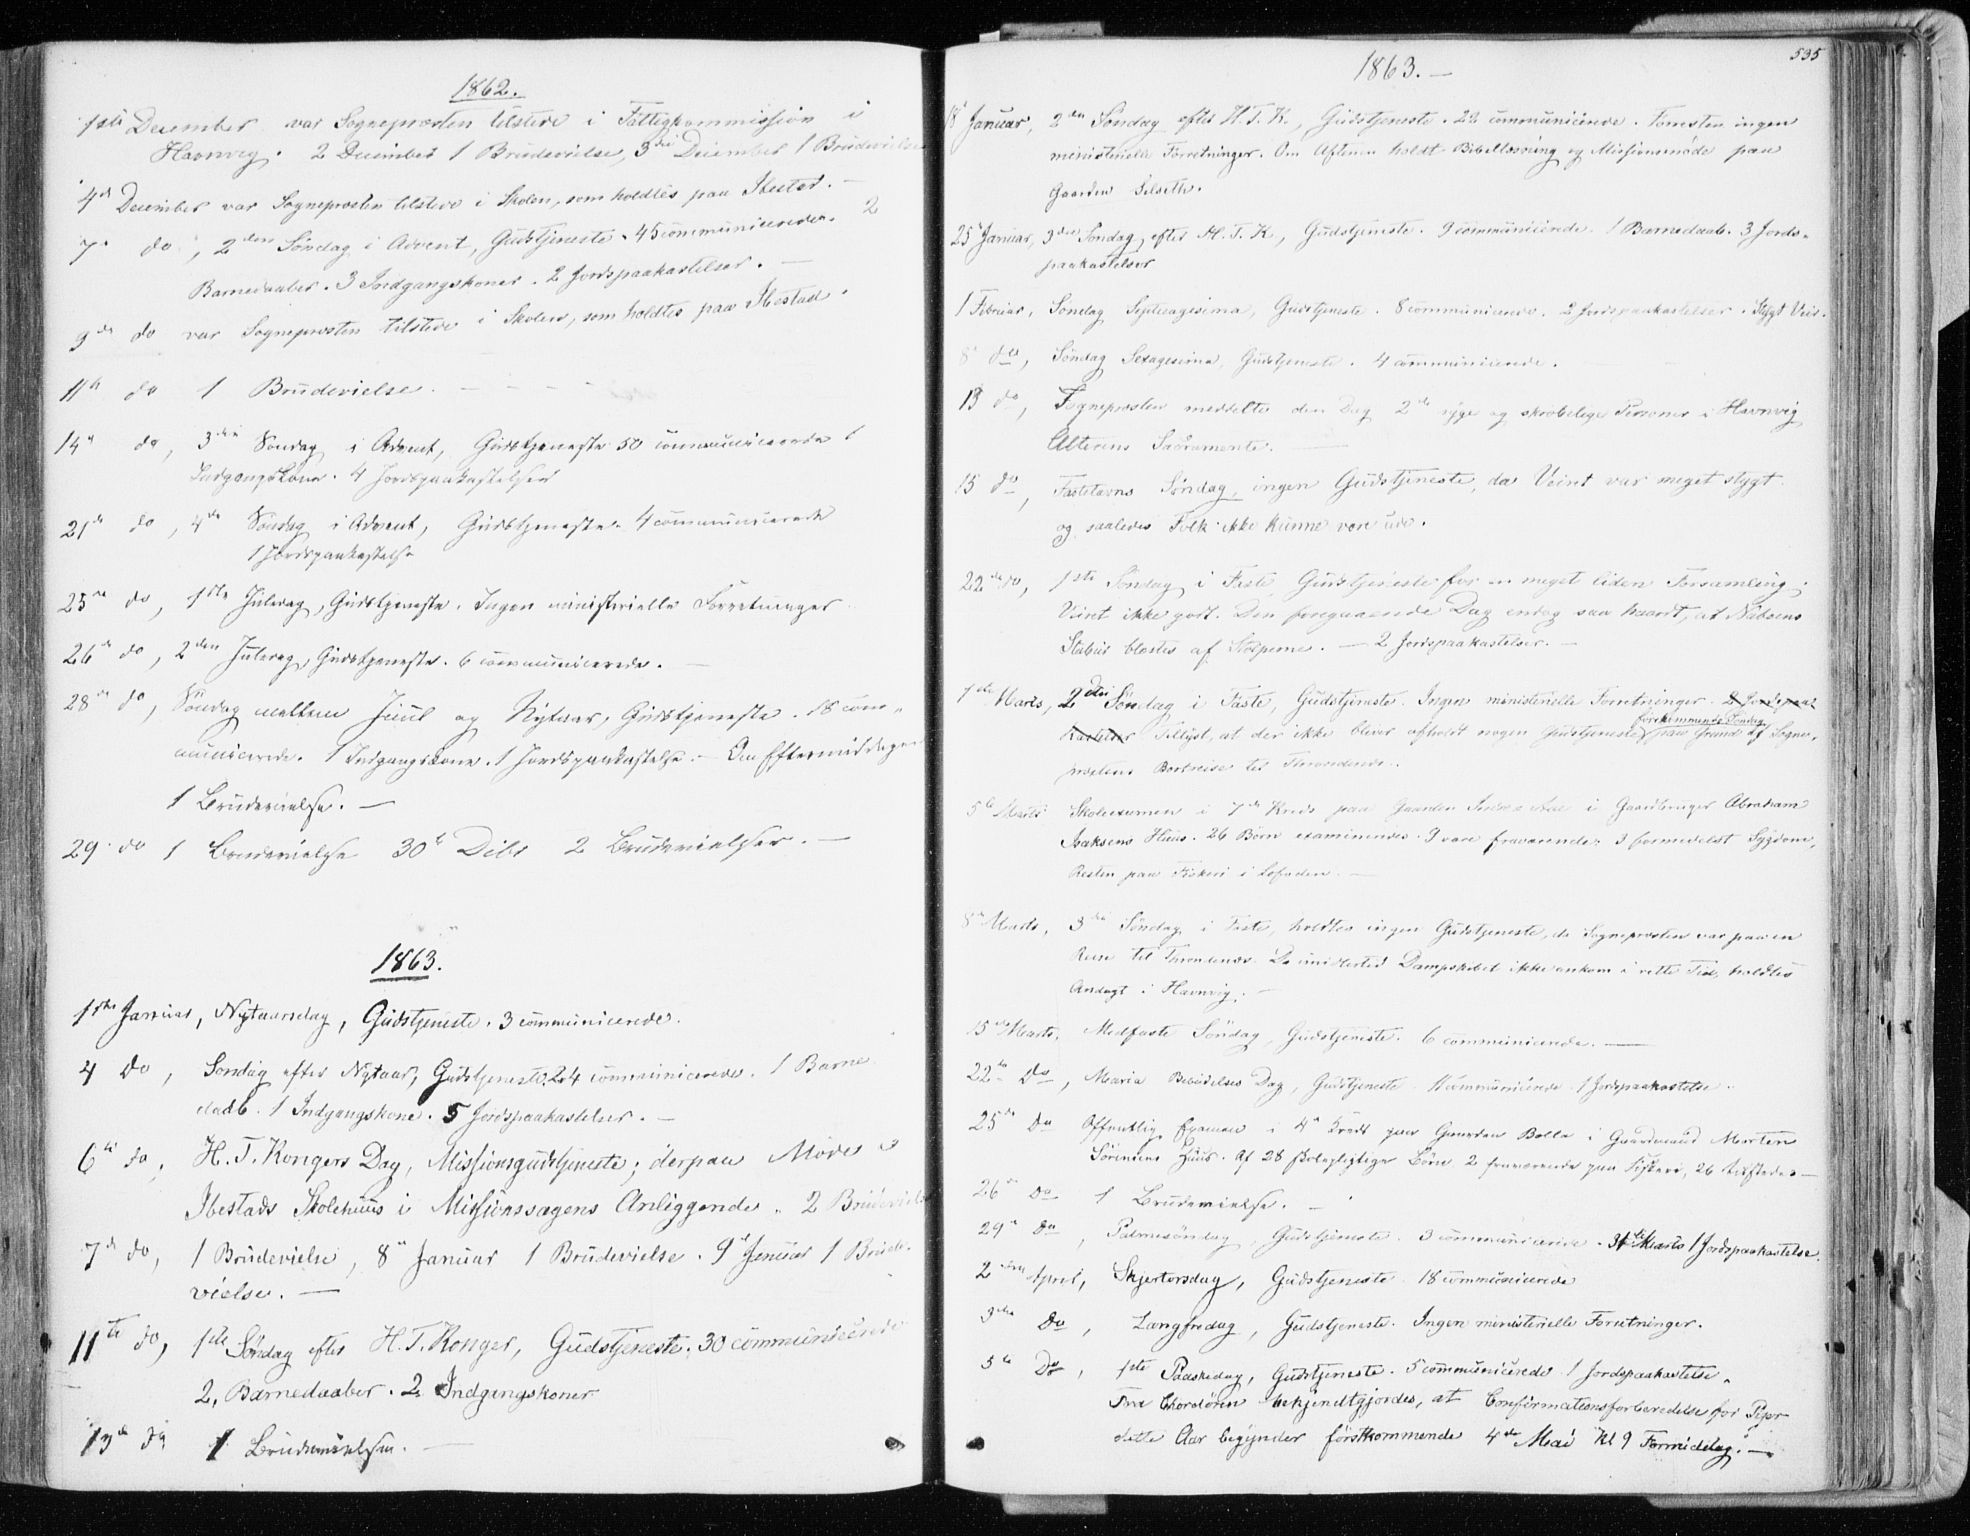 1862.
1ste December var Sognepræsten tilstede i Fattigkommission i
Havnvig. 2 December 1 Brudevielse, 3die December 1 Brudevielse
4de December var Sognepræsten tilstede i Skolen, som holdtes paa Ibestad. —
7de do, 2den Söndag i Advent, Gudstjeneste. 45 communicerede. 2
Barnedaaber. 3 Indgangskoner. 2 Jordspaakastelser. —
9de do var Sognepræsten tilstede i Skolen, som holdtes paa Ibestad.
11te do 1 Brudevielse.
14de do, 3die Söndag i Advent, Gudstjeneste 50 communicerede 1
Indgangskone. 4 Jordspaakastelser
21de do, 4de Söndag i Advent, Gudstjeneste. 4 communicerede
1 Jordspaakastelse
25de do, 1ste Juledag, Gudstjeneste. Ingen ministerielle Forretninger
26de do, 2den Juledag, Gudstjeneste. 6 communicerede. —
28de do, Söndag mellem Juul og Nytaar, Gudstjeneste. 18 com-
municerede. 1 Indgangskone. 1 Jordspaakastelse. — Om Eftermiddagen
1 Brudevielse. —
29. do 1 Brudevielse 30te Dibs 2 Brudevielser. —
1863.
1ste Januar, Nytaarsdag, Gudstjeneste. 3 communicerede.
4 do, Söndag efter Nytaar, Gudstjeneste. 24 communicerede. 1 Barne
daab. 1 Indgangskone. 5 Jordspaakastelser. —
6te do, H. T. Kongers Dag, Missionsgudstjeneste; derpaa Möde i
Ibestads Skolehuus i Missionssagens Anliggende. 2 Brudeviel
7de do, 1 Brudevielse, 8de Januar 1 Brudevielse. 9de Januar 1 Brude-
vielse. —
11te do, 1ste Söndag efter H. T. Konger, Gudstjeneste. 30 communicerede
2, Barnedaaber. 2 Indgangskoner
13de do 1 Brudevielse. —
535
1863. —
18 Januar, 2den Söndag efter H. T. K., Gudstjeneste. 22 communicerede. Foresten ingen
ministerielle Forretninger. Om Aftenen holdt Bibellæsning og Missionsmöde paa
Gaarden Selseth.
25 Januar, 3die Söndag efter H. T. K., Gudstjeneste. 9 communicerede. 1 Barnedaab. 3 Jords-
paakastelser
1 Februar, Söndag Septuagesima, Gudstjeneste. 8 communicerede. 2 Jordspaakastelser. Stygt Veir.
8de do, Söndag Sexagesima, Gudstjeneste. 4 communicerede.
13 do, Sognepræsten meddelte den Dag 2de syge og skröbelige Personer i Havnvig
Alterens Sacramente. —
15 do, Fastelavns Söndag, ingen Gudstjeneste, da Veiret var meget stygt
og saaledes Folk ikke kunne være ude.
22de do, 1ste Söndag i Faste, Gudstjeneste for en meget liden Forsamling;
Veiret ikke godt. Den foregaaende Dag var saa haardt, at
Stabur blæstes af Stolperne. — 2 Jordspaakastelser. —
1ste Marts, 2den Söndag i Faste, Gudstjeneste. Ingen ministerielle Forretninger. 2 Jordspaa-
kastelser Tillyst, at der ikke bliver afholdt nogen Gudstjeneste förstkommende Söndag paa Grund af Sogne-
præstens Bortreise til Throndenæs.
5te Marts Skoleexamen i 7de Kreds paa Gaarden i Gaardbruger Abraham
Isaksens Huus. 26 Börn examineredes. 9 vare fraværende; 3 formedelst Sygdom,
Resten paa Fiskeri i Lofoden. —
8de Marts, 3die Söndag i Faste, holdtes ingen Gudstjeneste, da Sognepræsten var paa en
Reise til Throndenæs. Da imidlertid Dampskibet ikke ankom i rette Tid, holdtes
Andagt i Havnvig. —
15de Marts, Midfaste Söndag, Gudstjeneste. 6 communicerede. —
22de Do, Maria Bebudelses Dag, Gudstjeneste. 11 communicerede. 1 Jordspaakastelse.
25de Do Offentlig Examen i 4de Kreds paa Gaarden Bolla i Gaardmand Morten
Sörensens Huus. Af 28 skolepligtige Börn 2 fraværende paa Fiskeri, 26 tilstede. —
26de Do 1 Brudevielse. —
29de Do, Palmesöndag, Gudstjeneste. 3 communicerede. 31te Marts 1 Jordspaakastelse.
2den April, Skjertorsdag, Gudstjeneste 18 communicerede
3die Do, Langfredag, Gudstjeneste. Ingen ministerielle Forretninger.
5te Do, 1ste Paaskedag, Gudstjeneste. 5 communicerede 1 Jordspaakastelse.
Fra Chordören bekjendtgjordes, at Confirmationsforberedelse for Piger
dette Aar begynder förstkommende 4de Mai Kl 9 Formiddag. —